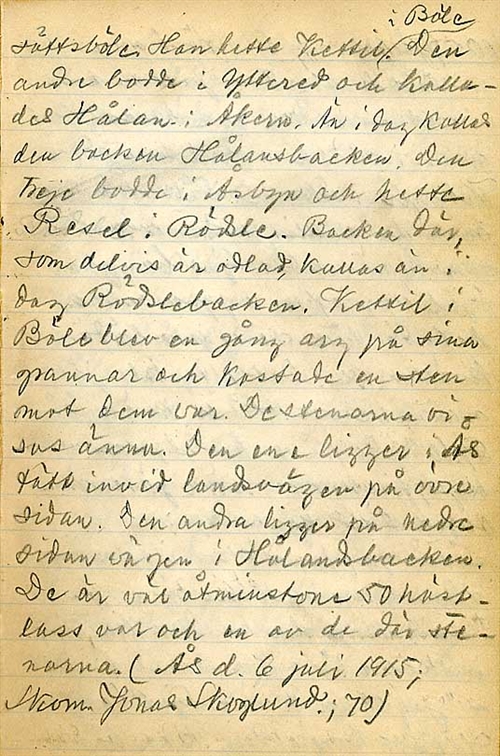 i Böle
sättsböle. Han hette Kettil. Den
andre bodde i Yttered och kalla-
des Hålan i Åkern. Än i dag kallas
den backen Hålansbacken. Den
treje bodde i Åsbyn och hette
Resel i Rödsle. Backen där,
som delvis är odlad, kallas än i
dag Rödslebacken. Kettil i
Böle blev en gång arg på sina
grannar och kastade en sten
mot dem var. De stenarna vi-
sas ännu. Den ene ligger i Ås
tätt invid landsvägen på övre
sidan. Den andra ligger på nedre
sidan vägen i Hålandsbacken.
De är väl åtminstone 50 häst-
lass var och en av de där ste-
narna. (Ås d. 6 juli 1915;
Skom. Jonas Skoglund.; 70)